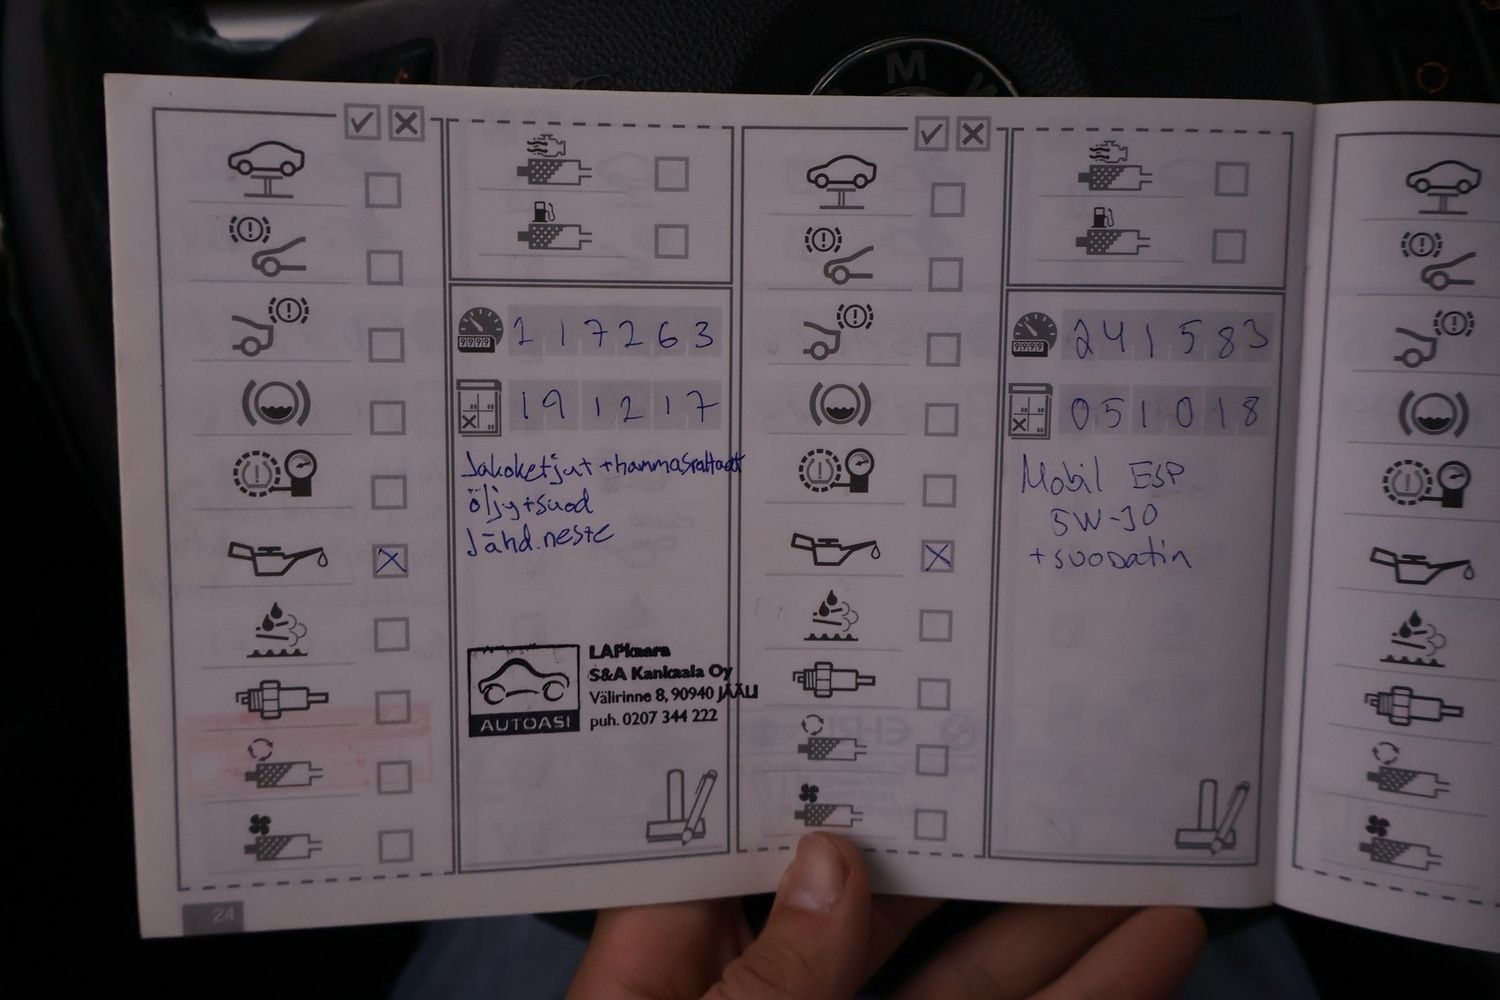 M W
9999
217263
191217
Jakoketjut + hammasrattaat
öljy + suod
Jähd.neste
LAPkaara
S&A Kankaala Oy
Välirinne 8, 90940 JÄÄLI
puh. 0207 344 222
AUTOASI
9999
241583
051018
Mobil ESP
5W-30
+ suodatin
24